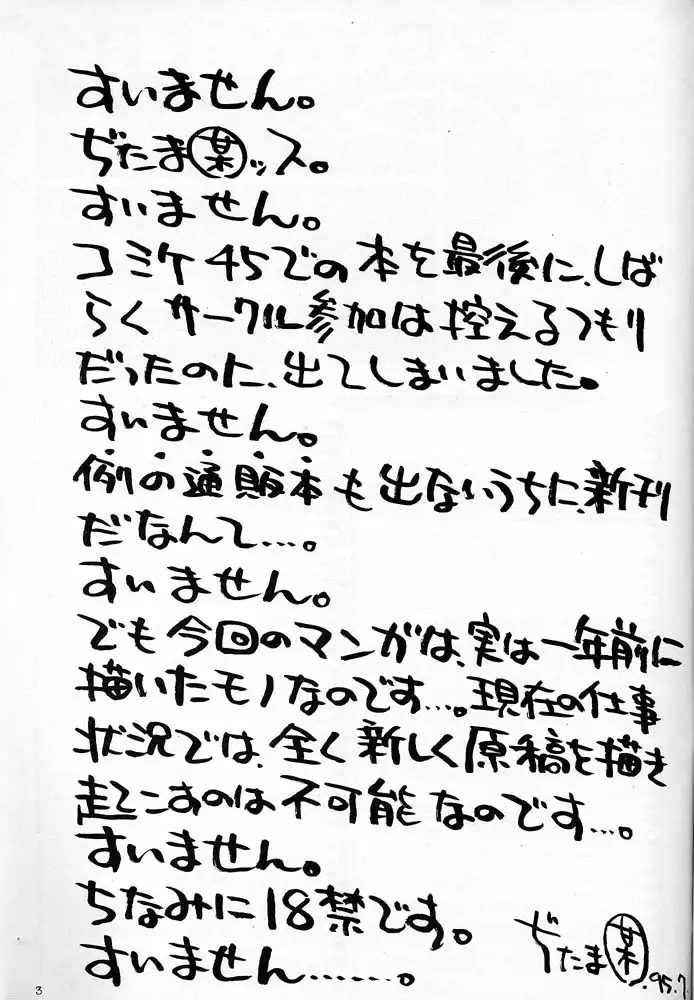 すいません。
ぢたま㊙ッス。
すいません。
コミケ45での本を最後に、しば
らくサークル参加は控えるつもり
だったのに、出てしまいました。
すいません。
例の通販本も出ないうちに、新刊
だなんて…。
すいません。
でも今回のマンガは、実は一年前に
描いたモノなのです…。現在の仕事
状況では、全く新しく原稿を描き
起こすのは不可能なのです…。
すいません。
ちなみに18禁です。
すいません……。
ぢたま某
.95.7.
3